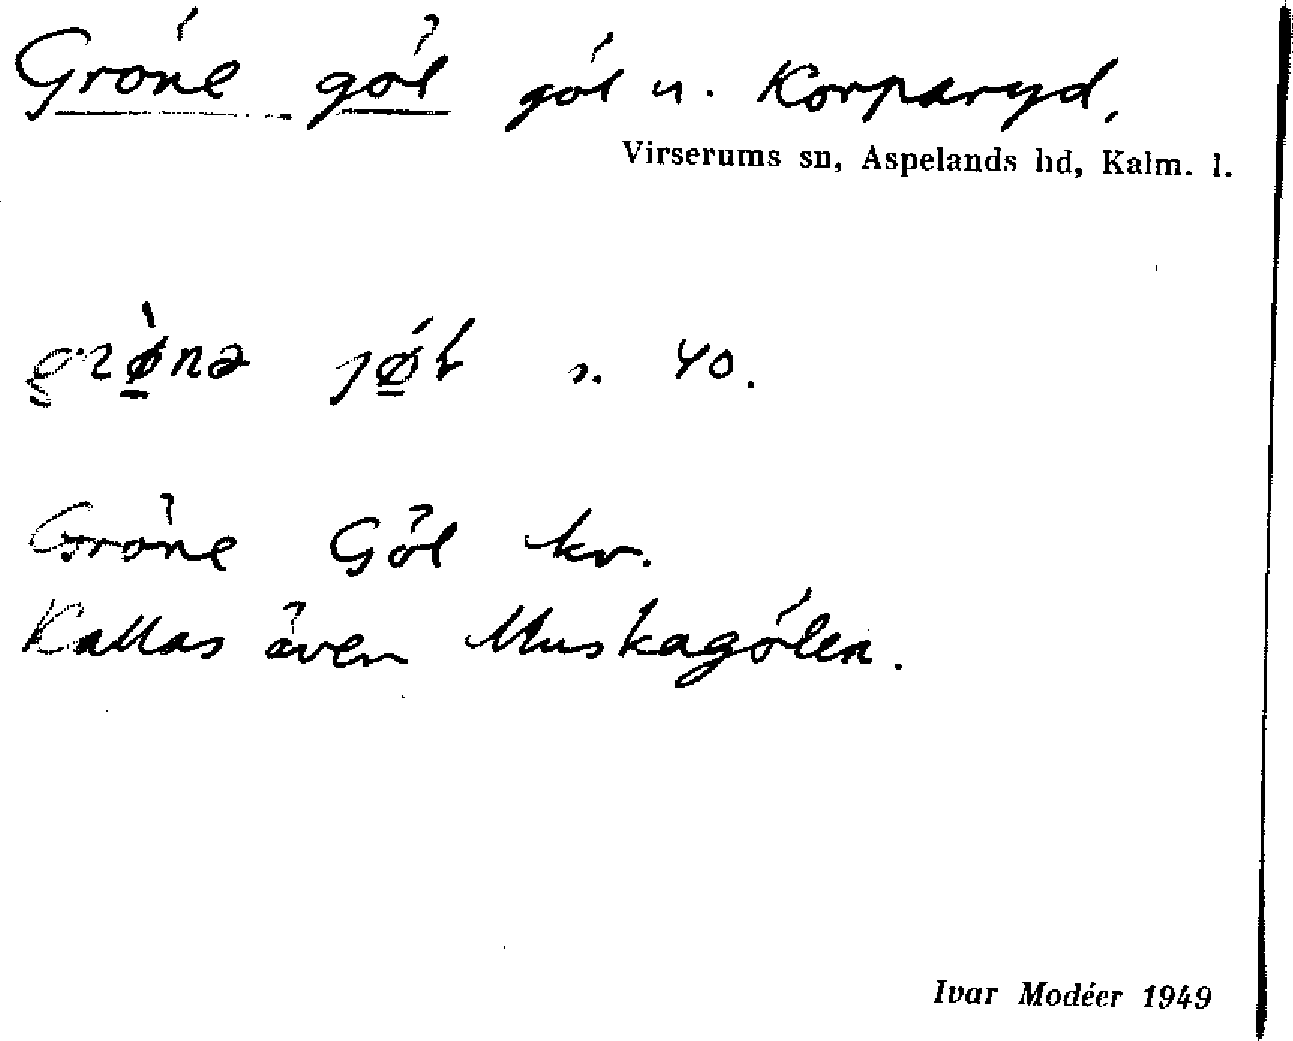 Gröne göl göl u. Korparyd,
Virserums sn, Aspelands hd, Kalm. l.
grø̀nə jøĺ s. 40.
Gröne Göl kv.
Kallas även Muskagölen.
Ivar Modéer 1949